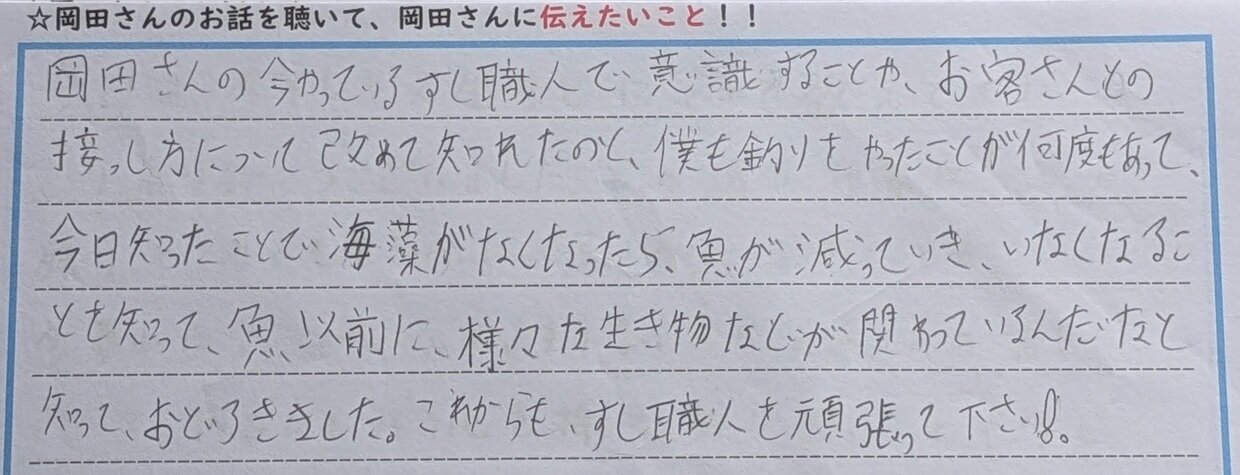 ☆岡田さんのお話を聴いて、岡田さんに伝えたいこと！！
岡田さんの今やっているすし職人で意識することや、お客さんとの
接っし方について改めて知れたのと、僕も釣りをやったことが何度もあって、
今日知ったことで海藻がなくなったら、魚が減っていき、いなくなるこ
とも知って、魚以前に、様々な生き物などが関わっているんだなと
知って、おどろきました。これからも、すし職人を頑張って下さい!。